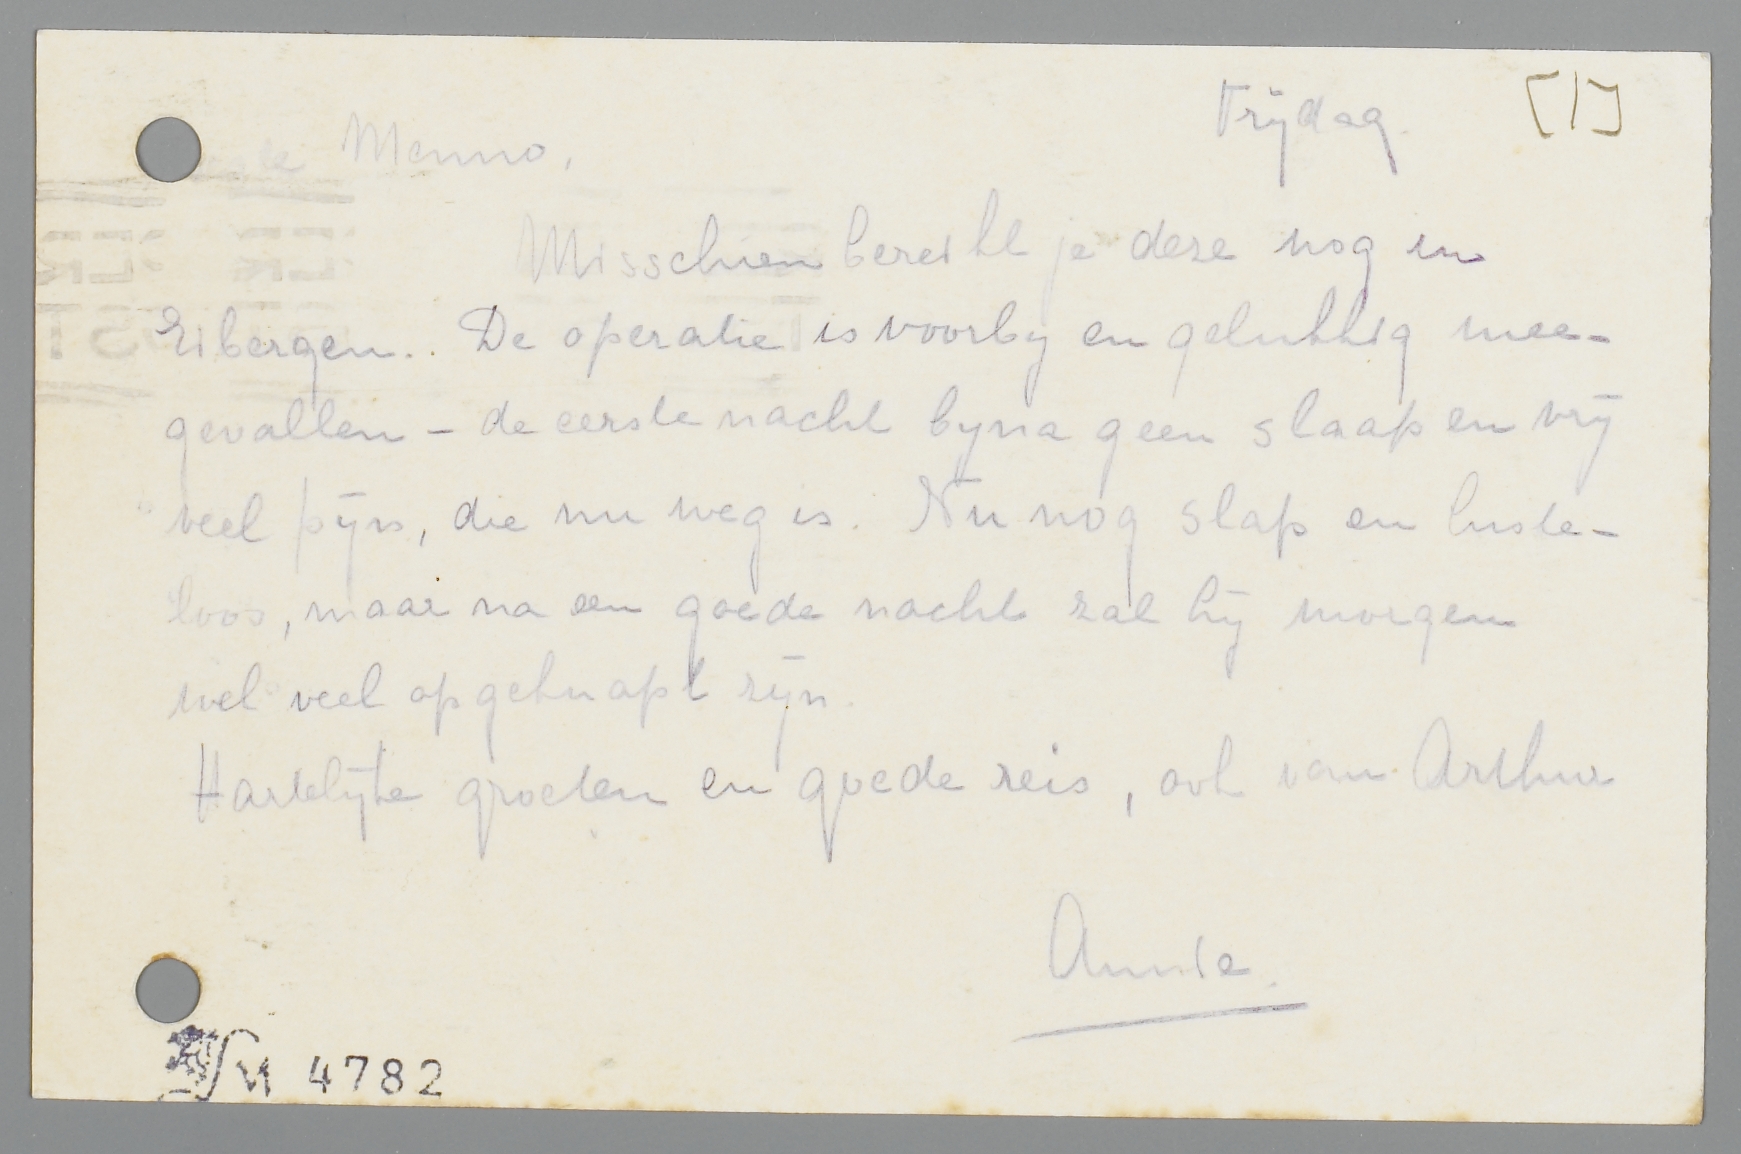 Vrijdag. [1]
Menno,
Misschien bereikt je deze nog in
Eibergen.. De operatie is voorbij en gelukkig mee-
gevallen - de eerste nacht bijna geen slaap en vrij
veel pijn, die nu weg is. Nu nog slap en luste-
loos, maar na een goede nacht zal hij morgen
wel veel opgeknapt zijn.
Hartelijke groeten en goede reis, ook van Arthur
Annie.
M 4782